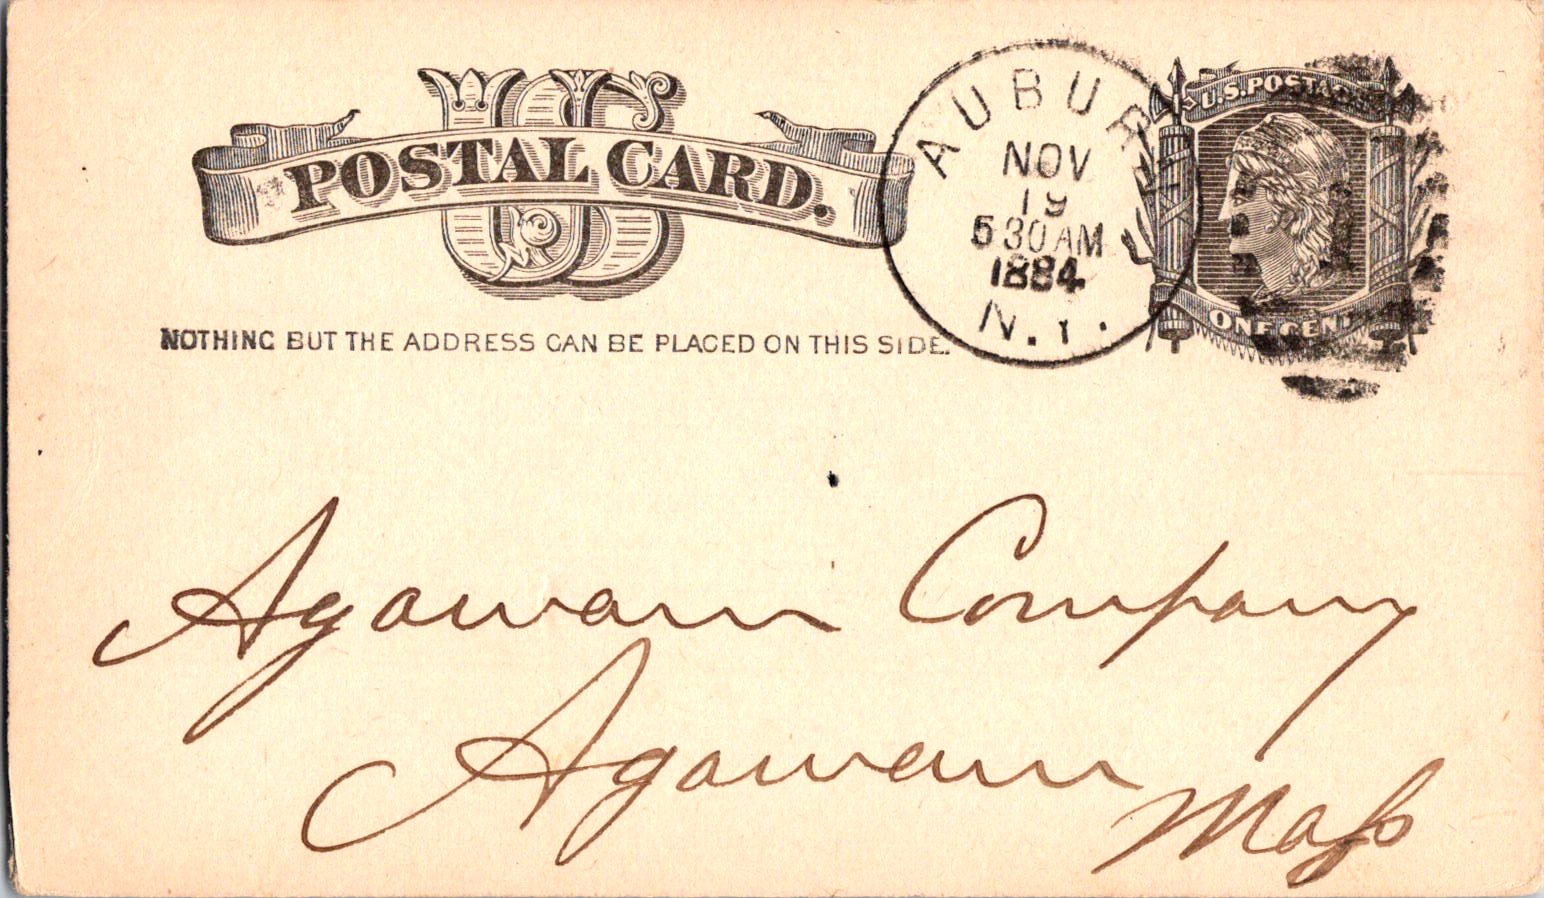 US
POSTAL CARD.
NOTHING BUT THE ADDRESS CAN BE PLACED ON THIS SIDE.
AUBURN
NOV
19
5 30 AM
1884
N.Y.
U.S. POSTAGE
ONE CENT
Agawam Company
Agawam
Mass